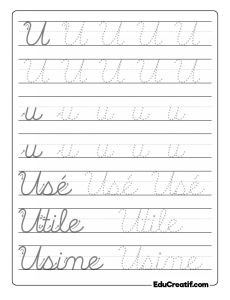 U U U U U U
U U U U U U
u u u u u u
u u u u u u
Usé Usé Usé
Utile Utile
Usine Usine
EduCreatif.com